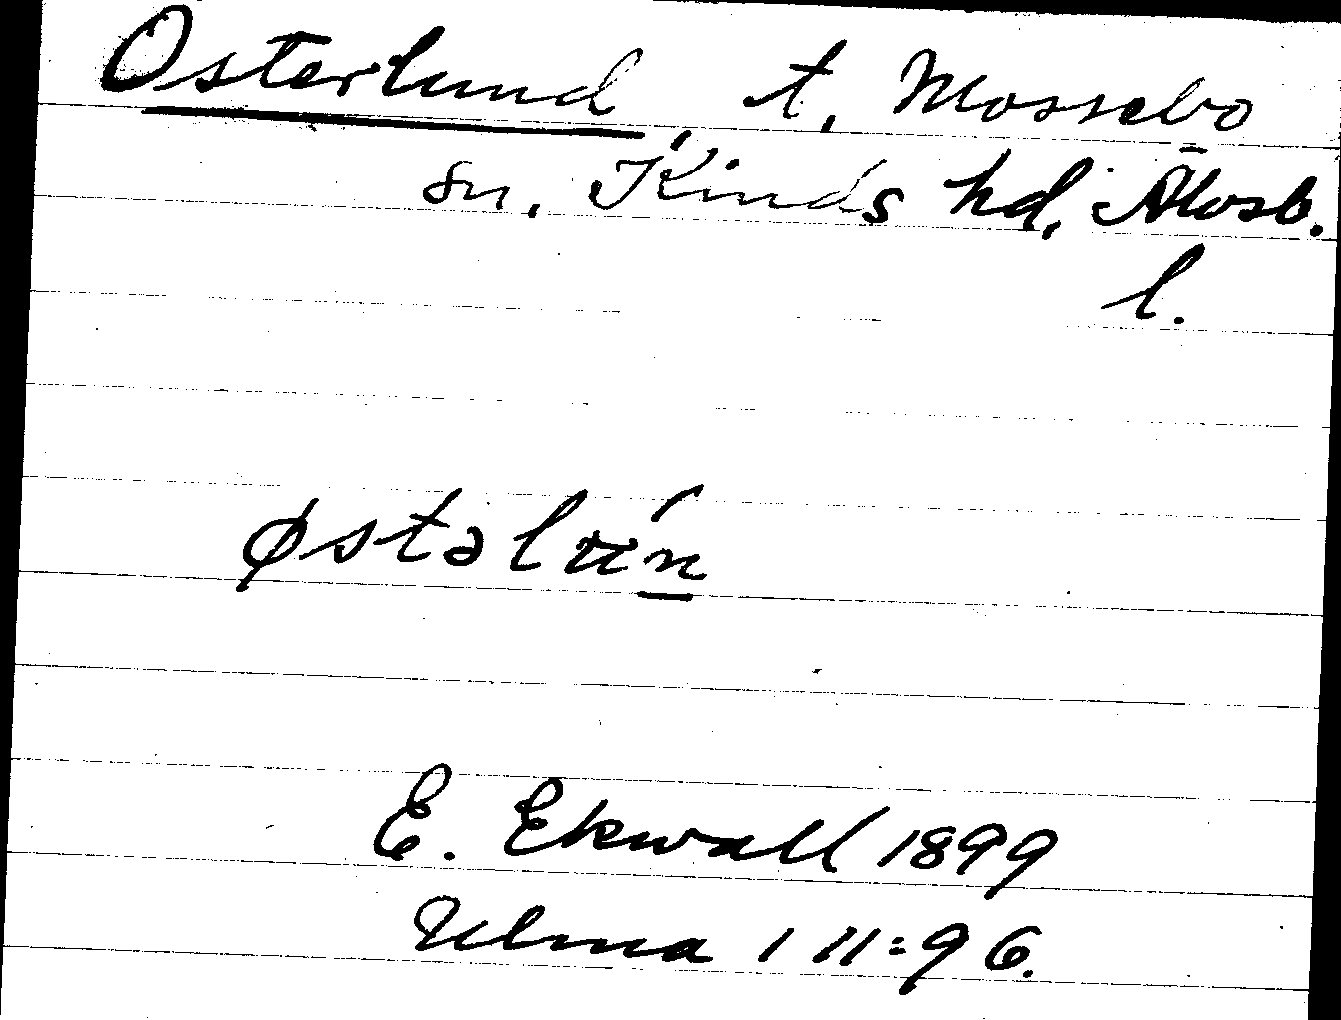 Österlund, t. Mossebo
sn. Kinds hd, Älvsb.
l.
østəlún
E. Ekwall 1899
Ulma 111:96.